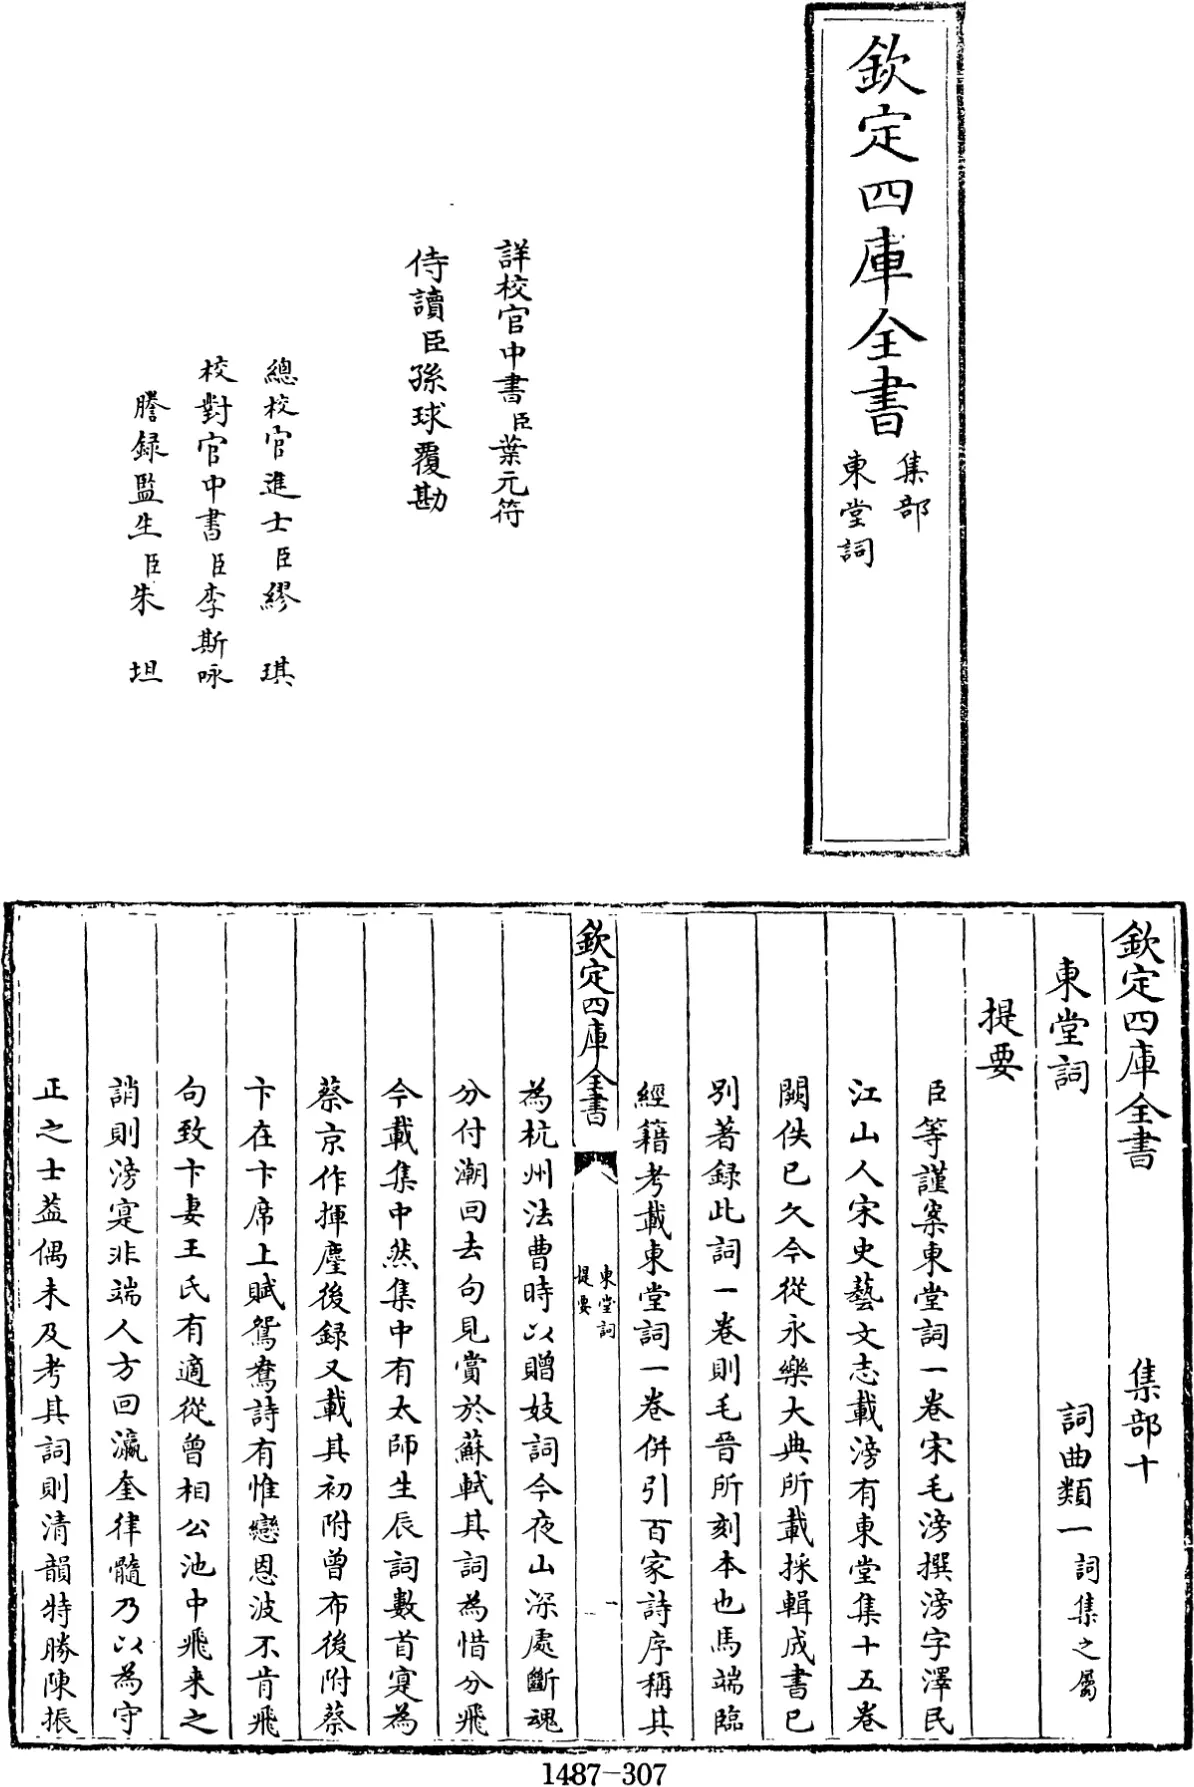 欽定四庫全書
集部
東堂詞
詳校官中書臣葉元符
侍讀臣孫球覆勘
總校官進士臣繆琪
校對官中書臣李斯咏
謄録監生臣朱坦
欽定四庫全書 集部十
東堂詞 詞曲類一 詞集之屬
提要
臣等謹案東堂詞一卷宋毛滂撰滂字澤民
江山人宋史藝文志載滂有東堂集十五卷
闕佚已久今從永樂大典所載採輯成書已
別著録此詞一卷則毛晉所刻本也馬端臨
經籍考載東堂詞一卷併引百家詩序稱其
欽定四庫全書
東堂詞
提要
一
為杭州法曹時以贈妓詞今夜山深處斷魂
分付潮回去句見賞於蘇軾其詞為惜分飛
今載集中然集中有太師生辰詞數首寔為
蔡京作揮麈後録又載其初附曾布後附蔡
卞在卞席上賦鴛鴦詩有惟戀恩波不肯飛
句致卞妻王氏有適從曾相公池中飛来之
誚則滂寔非端人方回瀛奎律髓乃以為守
正之士葢偶未及考其詞則清韻特勝陳振
1487-307